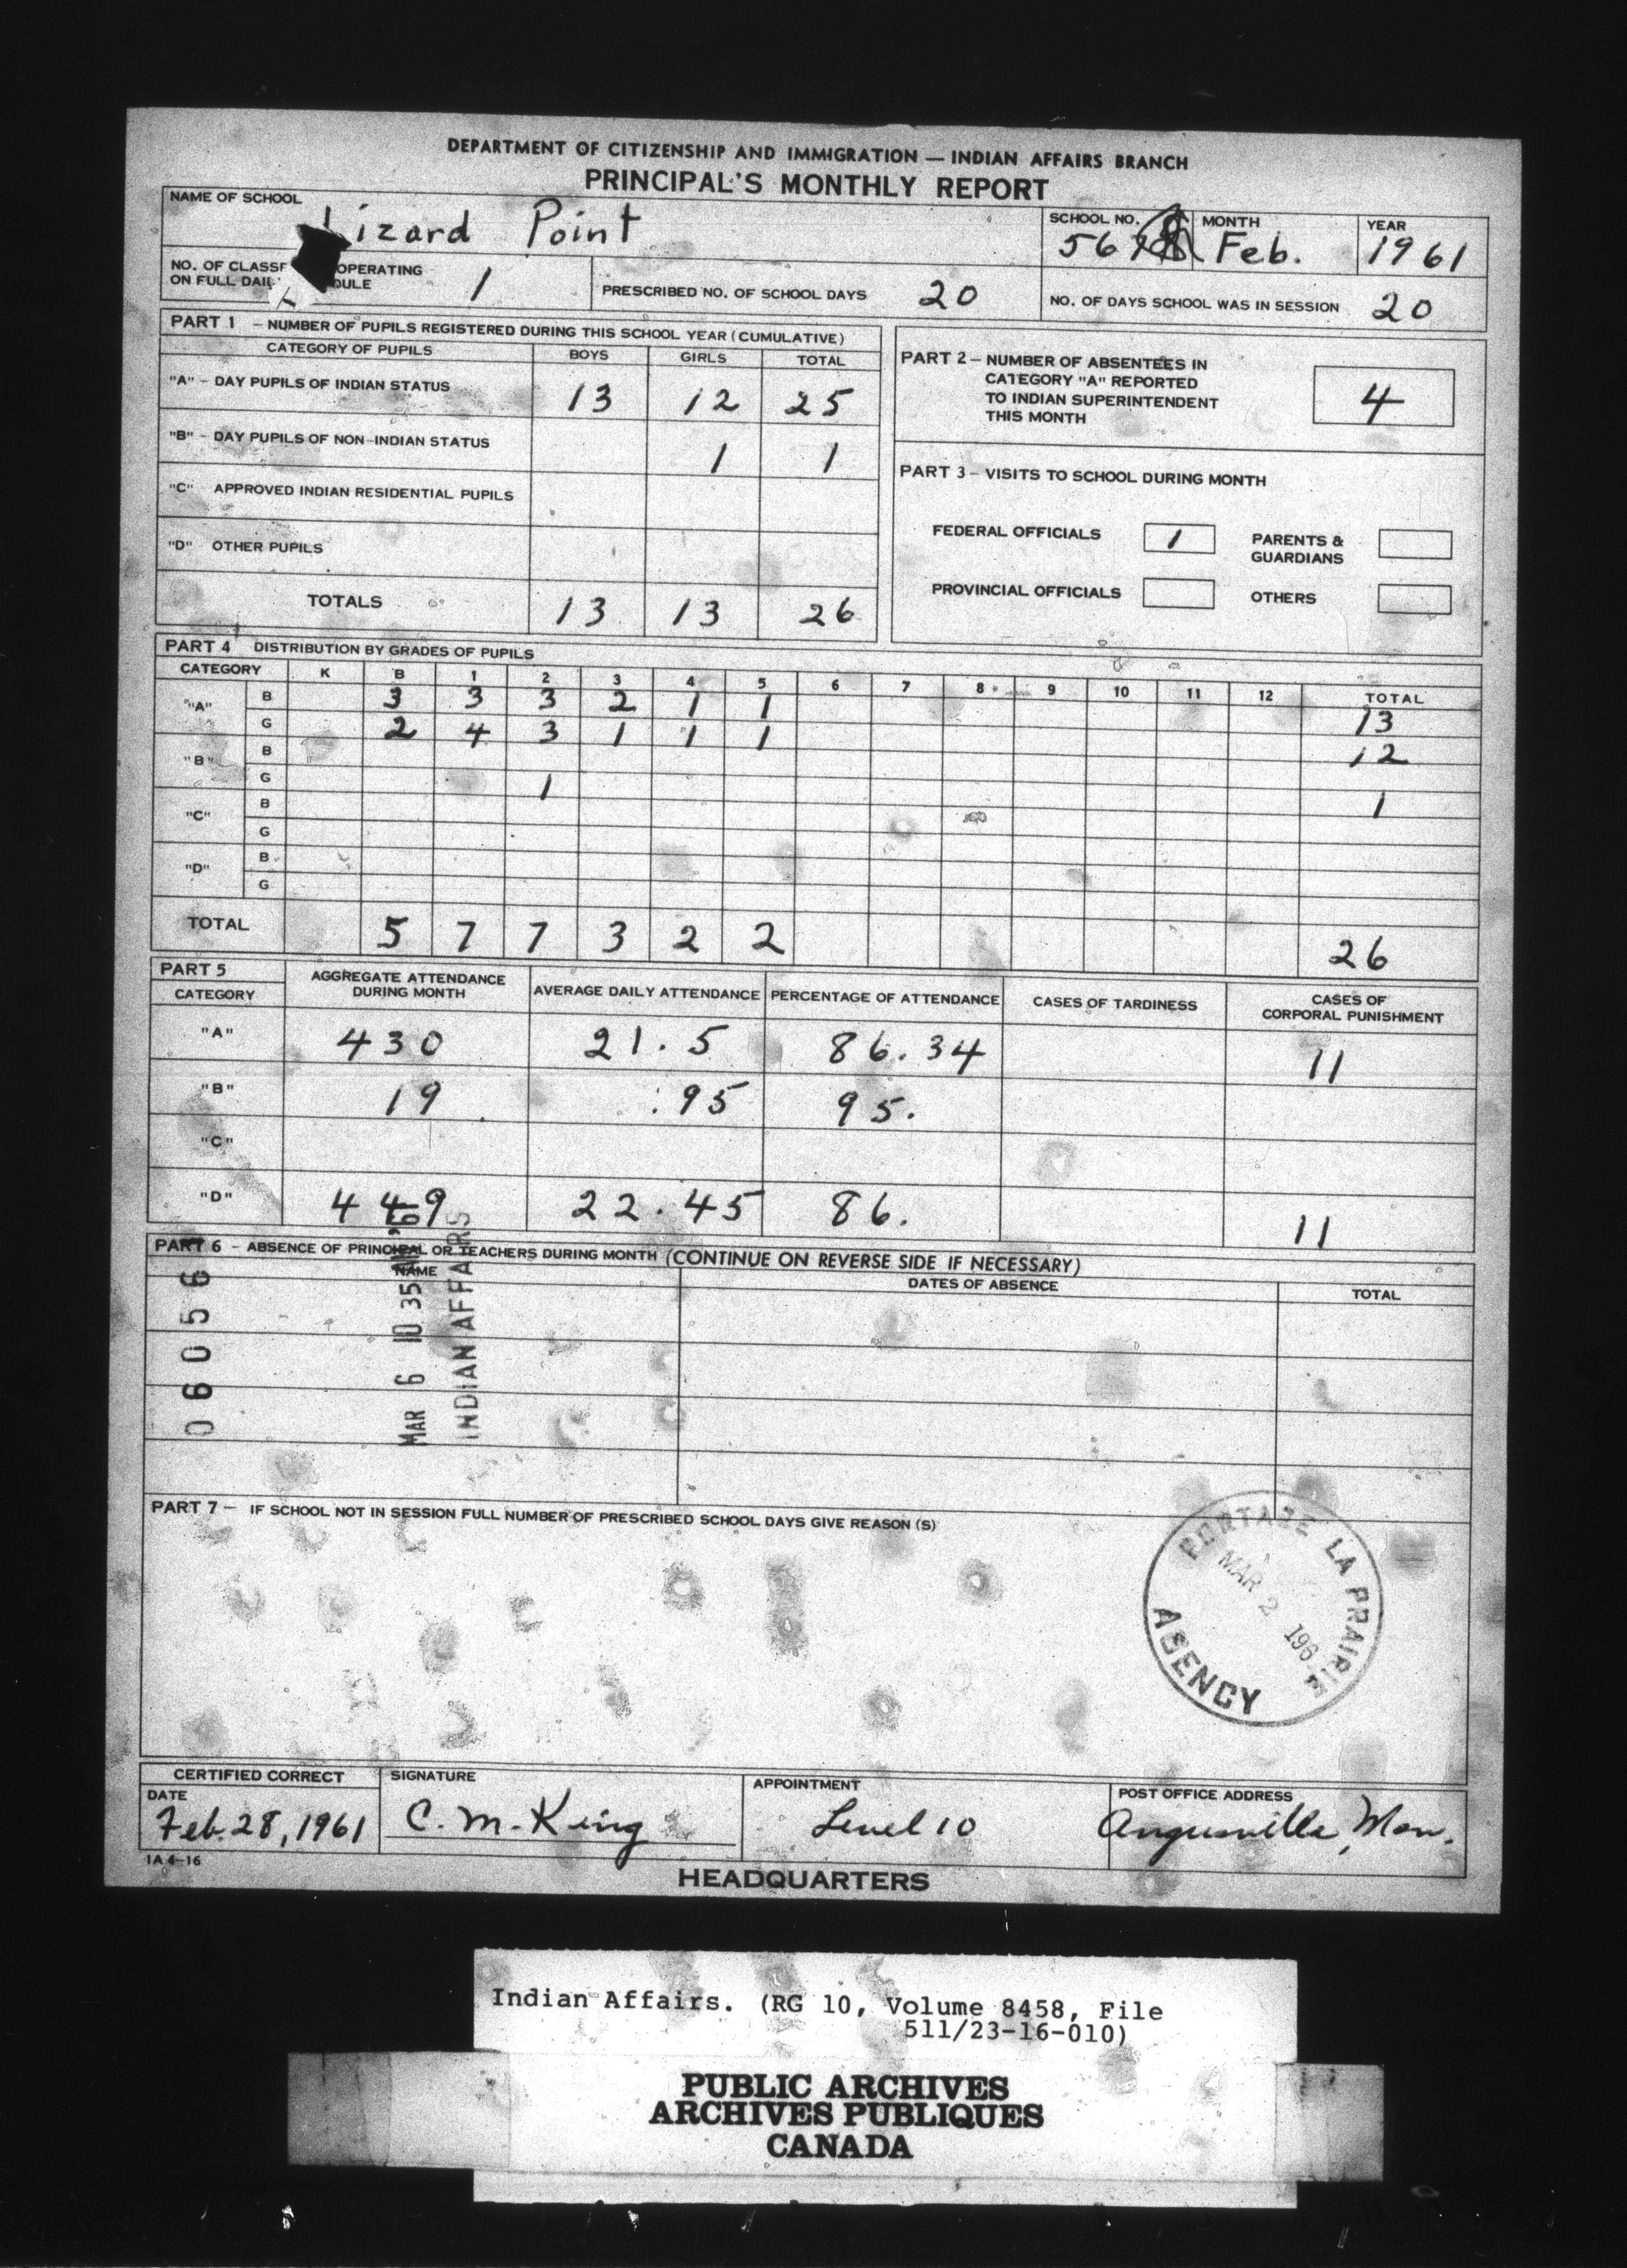 DEPARTMENT OF CITIZENSHIP AND IMMIGRATION — INDIAN AFFAIRS BRANCH
PRINCIPAL'S MONTHLY REPORT
NAME OF SCHOOL Lizard Point
SCHOOL NO. MONTH Feb. YEAR 1961
NO. OF CLASS OPERATING
ON FULL DAIL 1
PRESCRIBED NO. OF SCHOOL DAYS 20
NO. OF DAYS SCHOOL WAS IN SESSION 20
PART 1 – NUMBER OF PUPILS REGISTERED DURING THIS SCHOOL YEAR (CUMULATIVE)
CATEGORY OF PUPILS BOYS GIRLS TOTAL
"A" – DAY PUPILS OF INDIAN STATUS 13 12 25
"B" – DAY PUPILS OF NON-INDIAN STATUS 1 1
"C" APPROVED INDIAN RESIDENTIAL PUPILS
"D" OTHER PUPILS
TOTALS 13 13 26
PART 2 – NUMBER OF ABSENTEES IN
CATEGORY "A" REPORTED
TO INDIAN SUPERINTENDENT
THIS MONTH
4
PART 3 – VISITS TO SCHOOL DURING MONTH
FEDERAL OFFICIALS 1 PARENTS &
GUARDIANS
PROVINCIAL OFFICIALS OTHERS
PART 4 DISTRIBUTION BY GRADES OF PUPILS
CATEGORY K B 1 2 3 4 5 6 7 8 9 10 11 12 TOTAL
"A" B 3 3 3 2 1 1 13
G 2 4 3 1 1 1 12
"B" B
G 1 1
"C" B
G
"D" B
G
TOTAL 5 7 7 3 2 2 26
PART 5
CATEGORY AGGREGATE ATTENDANCE
DURING MONTH AVERAGE DAILY ATTENDANCE PERCENTAGE OF ATTENDANCE CASES OF TARDINESS CASES OF
CORPORAL PUNISHMENT
"A" 430 21.5 86.34 11
"B" 19 .95 95.
"C"
"D" 449 22.45 86. 11
PART 6 – ABSENCE OF PRINCIPAL OR TEACHERS DURING MONTH (CONTINUE ON REVERSE SIDE IF NECESSARY)
NAME DATES OF ABSENCE TOTAL
060566
MAR 6 10 35
INDIAN AFFAIRS
PART 7 – IF SCHOOL NOT IN SESSION FULL NUMBER OF PRESCRIBED SCHOOL DAYS GIVE REASON (S)
PORTAGE LA PRAIRIE
MAR 2 196
AGENCY
CERTIFIED CORRECT
DATE Feb. 28, 1961
SIGNATURE C. M. King
APPOINTMENT Level 10
POST OFFICE ADDRESS Angusville, Man.
1A 4-16
HEADQUARTERS
Indian Affairs. (RG 10, Volume 8458, File
511/23-16-010)
PUBLIC ARCHIVES
ARCHIVES PUBLIQUES
CANADA